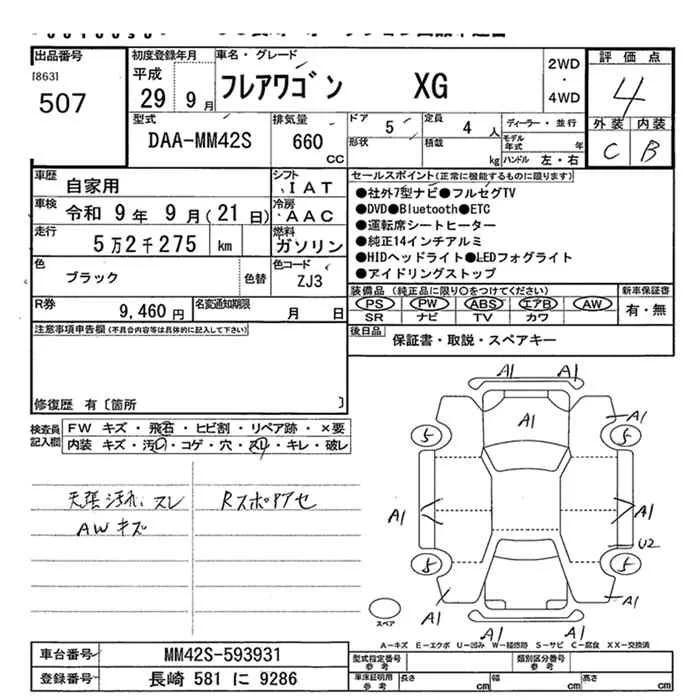 出品番号 初度登録年月 車名・グレード 評価点
[863] 507
平成 29 9月 フレアワゴン XG 2WD・4WD 4
外装 内装
C B
型式 排気量 ドア 5 定員 4人 ディーラー・並行
DAA-MM42S 660 CC 形状 積載 kg モデル年式 年
ハンドル 左・右
車歴 自家用 シフト IAT
車検 令和 9年 9月(21日) 冷房 AAC
走行 5万2千275 km 燃料 ガソリン
色 ブラック 色替 色コード ZJ3
R券 9,460円 名変通知期限 月 日
セールスポイント(正常に機能するものに限ります)
●社外7型ナビ●フルセグTV
●DVD●Bluetooth●ETC
●運転席シートヒーター
●純正14インチアルミ
●HIDヘッドライト●LEDフォグライト
●アイドリングストップ
装備品 (純正品に限り○をつけてください) 新車保証書
PS PW ABS エアB AW 有・無
SR ナビ TV カワ
後日品 保証書・取説・スペアキー
注意事項申告欄(不具合内容等は具体的に記入して下さい)
修復歴 有〔箇所 〕
検査員記入欄
FW キズ・飛石・ヒビ割・リペア跡・×要
内装 キズ・汚レ・コゲ・穴・スレ・キレ・破レ
天張汚れ、スレ
AWキズ
Rスポアセ
A1 A1
A1 A1
5 5
A1 A1
U2
5 5
A1 A1
A1 A1
スペア
A-キズ E-エクボ U-凹み W-補修跡 S-サビ C-腐食 XX-交換済
車台番号 MM42S-593931
登録番号 長崎 581 に 9286
型式指定番号 参考 類別区分番号 参考
車床証明用 参考 長さ cm 幅 cm 高さ cm